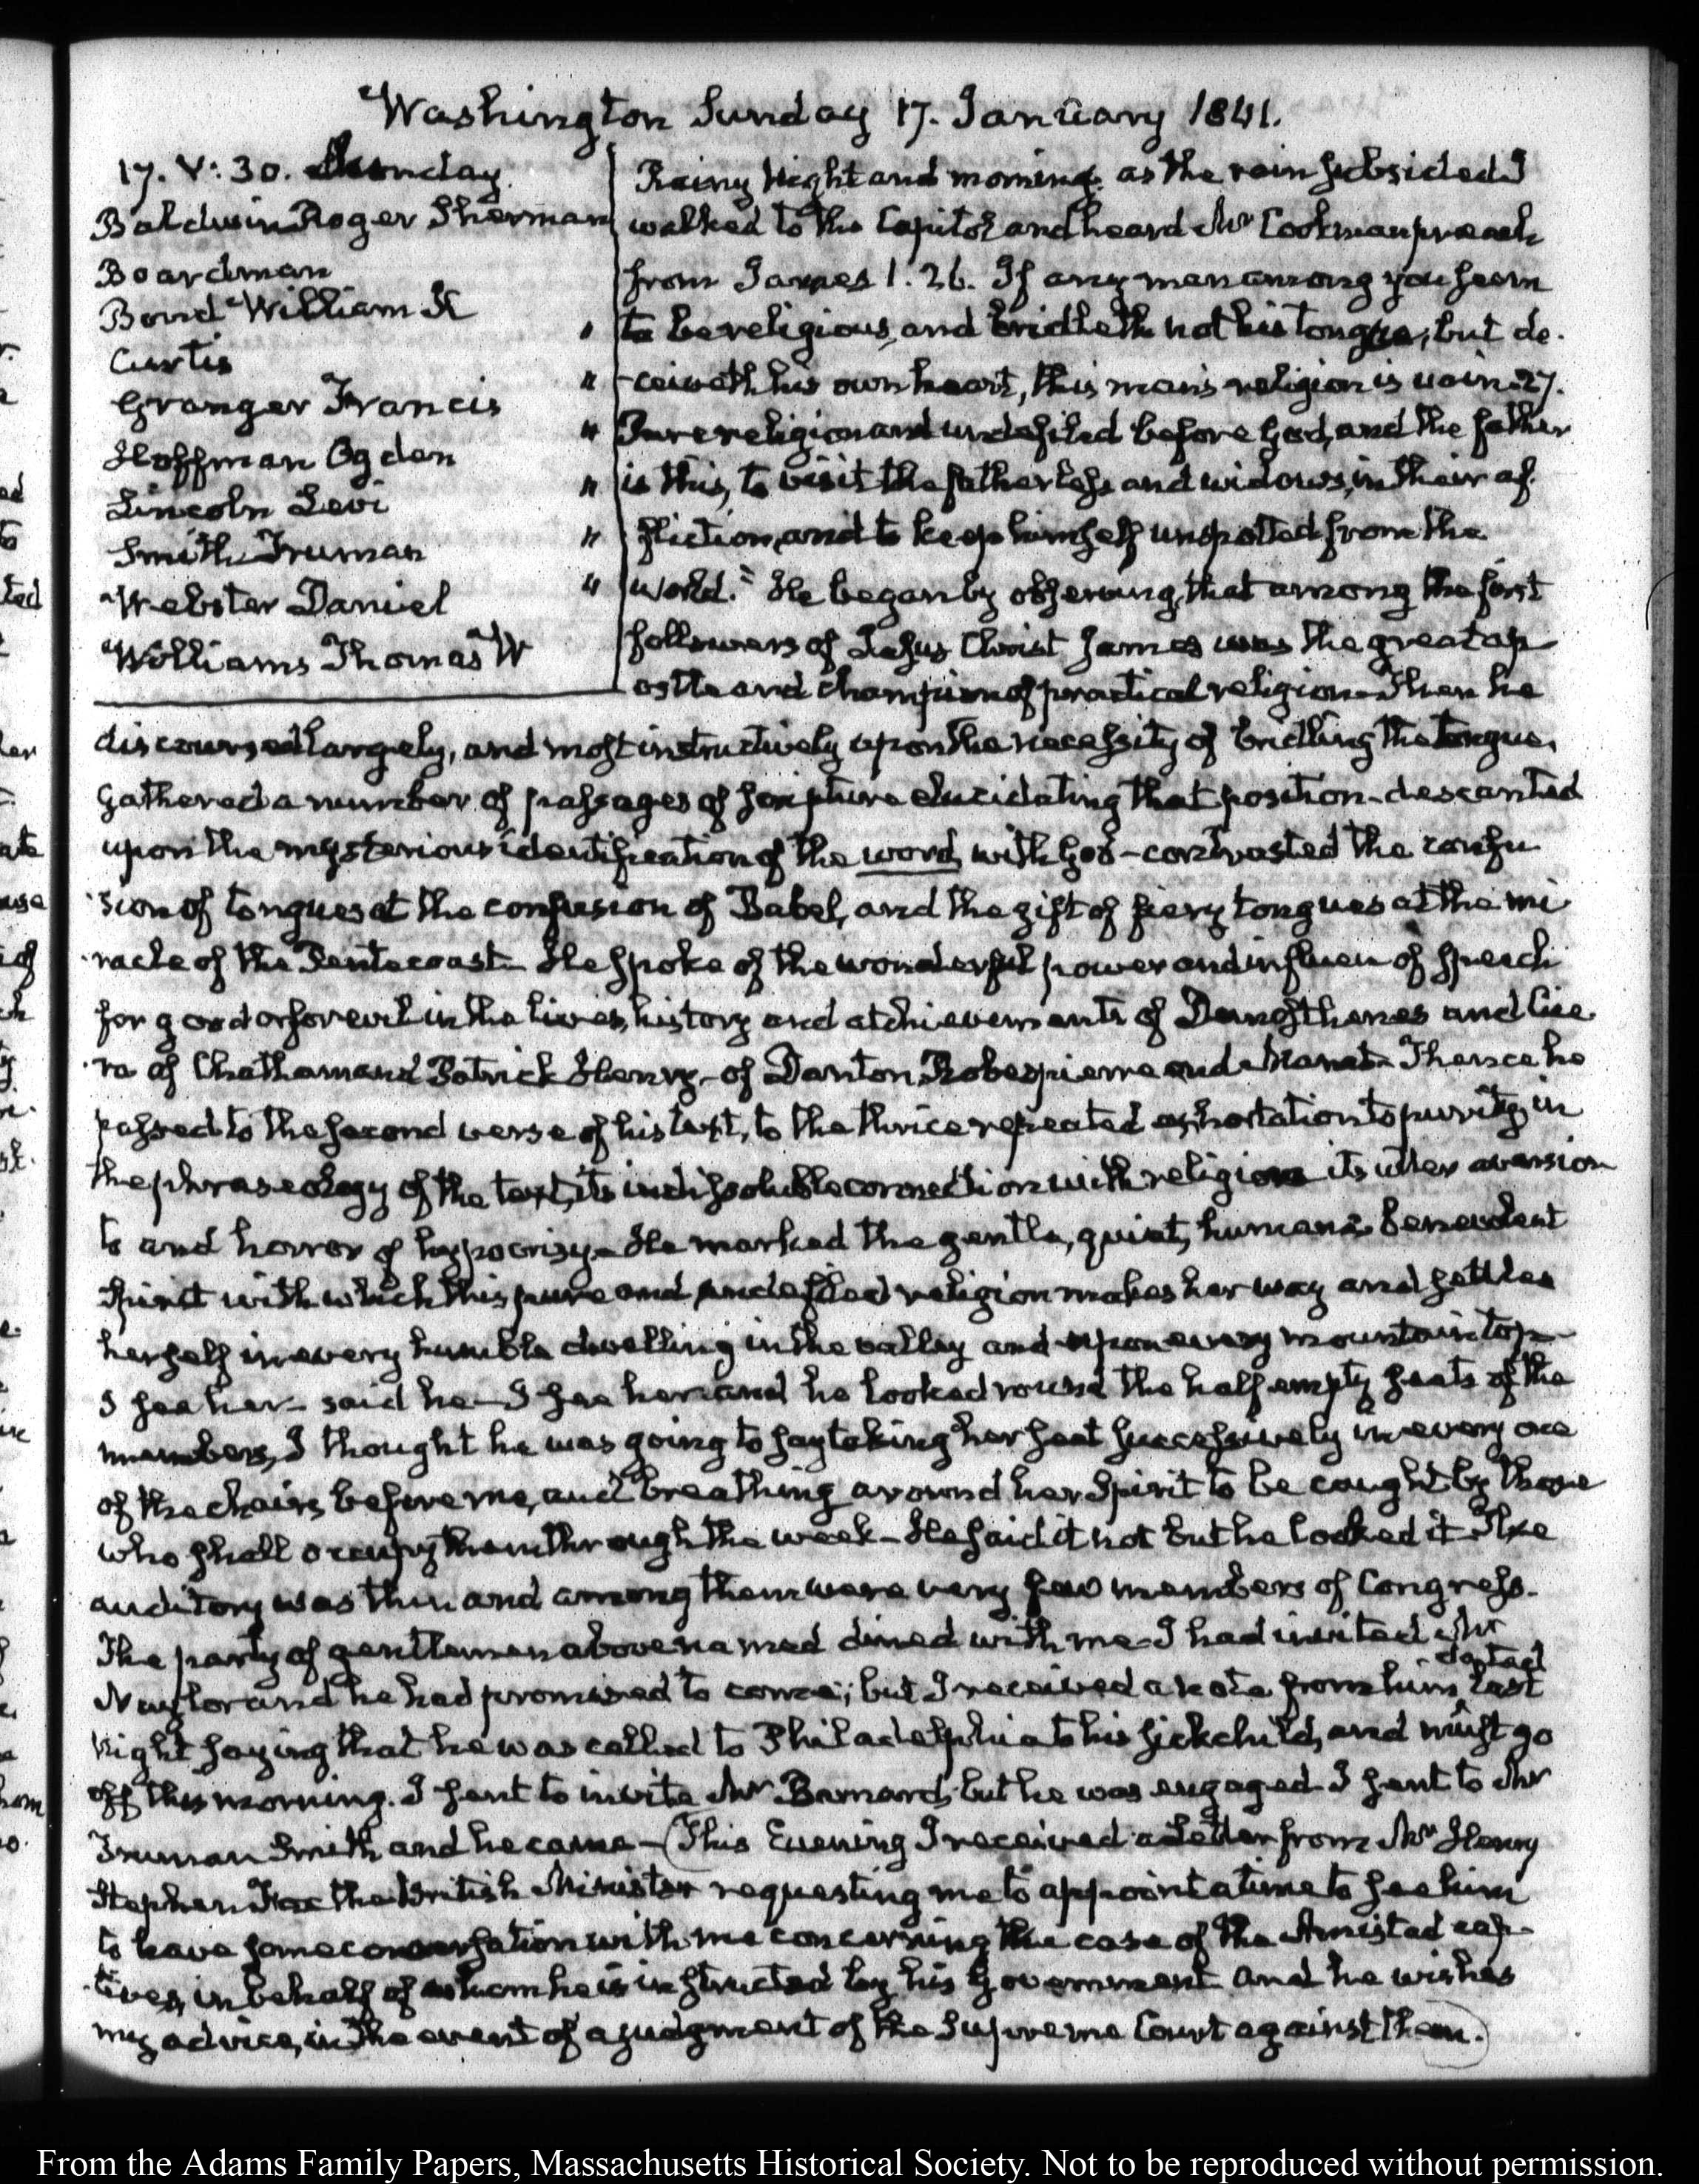 Washington Sunday 17. January 1841.
17. V: 30. Sunday.
Baldwin Roger Sherman
Boardman
Bond William K "
Curtis "
Granger Francis "
Hoffman Ogden "
Lincoln Levi "
Smith Truman "
Webster Daniel "
Williams Thomas W
Rainy Night and morning. as the rain subsided I
walked to the Capitol and heard Mr Cookman preach
from James 1. 26. If any man among you seem
to be religious, and bridleth not his tongue, but de-
-ceiveth his own heart, this man's religion is vain. 27.
Pure religion and undefiled before God, and the father
is this, to visit the fatherless and widows, in their af-
fliction, and to keep himself unspotted from the
world." He began by observing, that among the first
followers of Jesus Christ James was the great ap
ostle and champion of practical religion— Then he
discoursed largely, and most instructively upon the necessity of bridling the tongue.
Gathered a number of passages of scripture elucidating that position— descanted
upon the mysterious identification of the word, with God— contrasted the confu
-sion of tongues at the confusion of Babel, and the gift of fiery tongues at the mi
-racle of the Pentecoast— He spoke of the wonderful power and influen of speech
for good or for evil in the lives, history and atchievements of Demosthenes and Cice
-ro of Chatham and Patrick Henry— of Danton, Robespierre and Marat— Thence he
passed to the second verse of his text, to the thrice repeated exhortation to purity, in
the phraseology of the text, its indissoluble connection with religion its utter aversion
to and horror of hypocrisy— He marked the gentle, quiet, humane benevolent
Spirit with which this pure and undefiled religion makes her way and settles
herself in every humble dwelling in the valley and upon every mountain top—
I see her— said he— I see her; and he looked round the half empty seats of the
members, I thought he was going to say taking her seat successively in every one
of the chairs before me, and breathing around her Spirit to be caught by those
who shall occupy them through the week— He said it not but he looked it— The
auditory was thin and among them were very few members of Congress.
The party of gentlemen above named dined with me— I had invited Mr
Naylor and he had promised to come; but I received a note from him ^dated last
Night saying that he was called to Philadelphia to his sick child, and must go
off this morning. I sent to invite Mr Barnard, but he was engaged— I sent to Mr
Truman Smith and he came— (This Evening I received a Letter from Mr Henry
Stephen Fox the British Minister requesting me to appoint a time to see him
to have some conversation with me concerning the case of the Amistad cap-
-tives, in behalf of whom he is instructed by his Government and he wishes
my advice, in the event of a judgment of the Supreme Court against them.)
From the Adams Family Papers, Massachusetts Historical Society. Not to be reproduced without permission.